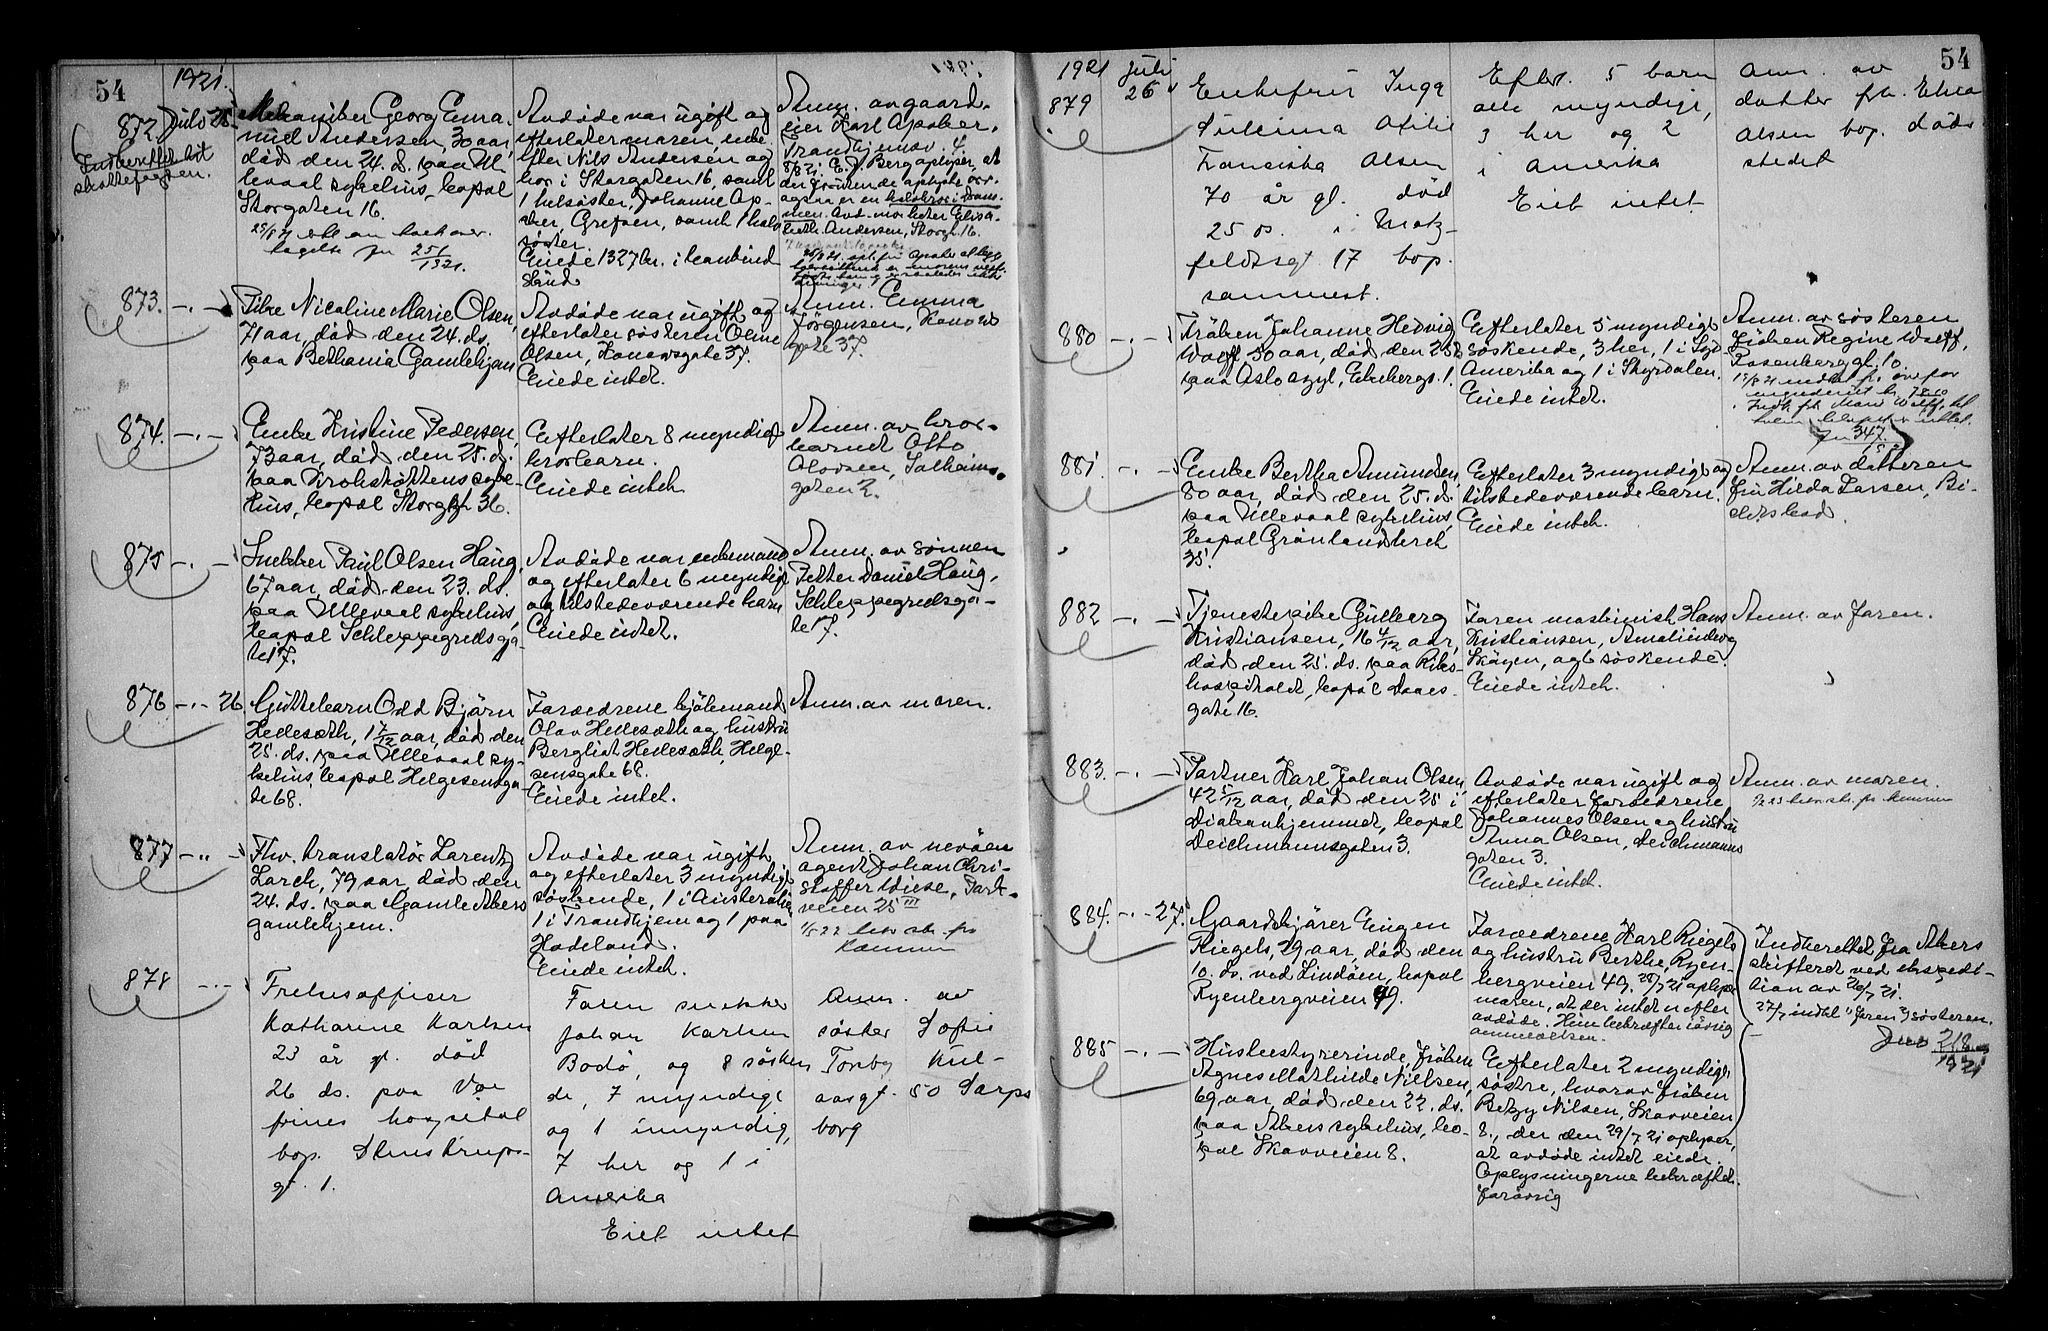 54
1921.
872. Juli 25.
Indberettet til
skiftefogden.
Mekaniker Georg Ema-
nuel Andersen, 30 aar,
død den 24. d. paa Ul-
levaal sykehus, bopæl
Storgaten 16.
Avdøde var ugift og
efterlater moren, enke
efter Nils Andersen og
bor i Storgaten 16, samt
1 helsøster, Johanne Ap-
Grefsen, samt 1 halv
søster.
Eiede 1327 kr. i
Anm. av gaard-
eier Karl
Trondhjemsv. 4.
Andersen, Storgt. 16.
873. -.-
Pike Nicoline Marie Olsen,
71 aar, død den 24. ds.
paa Bethania Gamlehjem
Avdøde var ugift og
efterlater søsteren Oline
Olsen, gate 37.
Eiede intet.
Anm. Emma
Jörgensen,
gate 37.
874. -.-
Enke Kristine Pedersen,
73 aar, død den 25. d.
paa Krohstøttens syke-
hus, bopæl Storgt 36.
Efterlater 8 myndige
brorbarn.
Eiede intet.
Anm. av bror-
barnet Otto
gaten 2.
875 -.-
Snekker Paul Olsen Haug,
67 aar, død den 23. ds.
paa Ullevaal sykehus,
bopæl Schleppegrellsga-
te 17.
Avdøde var enkemand
og efterlater 6 myndige
og tilstedeværende barn
Eiede intet.
Anm. av sønnen
Petter Daniel Haug,
Schleppegrellsga-
te 17.
876 -.- 26
Guttebarn Odd Bjørn
Hellesæth, 1 7/12 aar, død den
25. ds. paa Ullevaal sy-
kehus, bopæl Helgesensga-
te 68.
Forældrene
Olav Hellesæth og hustru
Bergliot Hellesæth, Helge-
sensgate 68.
Eiede intet.
Anm. av moren.
877 -..-
Fhv. translatør Larentz
Larch, 79 aar, død den
24. ds. paa Gamle Akers
gamlehjem.
Avdøde var ugift
og efterlater 3 myndige
søskende, 1 i Australien,
1 i Trondhjem og 1 paa
Hadeland.
Eiede intet.
Anm. av nevøen
agent Johan Chri-
stoffer Wiese,
veien 25 III
878 -.-
Frelsesoffiser
Katharine Karlsen
23 år gl. død
26 ds. paa Vor
frues hospital
bop. Stenstrups-
gt. 1.
Faren snekker
Johan Karlsen
Bodø, og 8 søsken
de, 7 myndige
og 1 umyndig,
7 her og 1 i
Amerika
Eiet intet
Anm. av
søster Sofie
Torsby, Kul-
aasgt. 50 Sarps
borg
54
1921 Juli
879 26
Enkefru Inga
Otilie
Franciska Olsen
70 år gl. død
25 ds. i Motz-
feldtsgt 17 bop.
sammest.
Efterl. 5 barn
alle myndige,
3 her og 2
i Amerika
Eiet intet
Anm. av
datter frk. Elisa
Olsen bop. døds-
stedet
880 -.-
Frøken Johanne Hedvig
Wolff, 50 aar, død den 25 d
paa Oslo asyl, Ekebergv. 1.
Efterlater 5 myndige
søskende, 3 her, 1 i Syd-
Amerika og 1 i Styrdalen.
Eiede intet.
Anm. av søsteren
frøken Regine Wolff,
Rosenborggt. 10.
Jn 347.
881. -.-
Enke Bertha Amundsen,
80 aar, død den 25. d.
paa Ullevaal sykehus,
bopæl Grønlandsleret
35.
Efterlater 3 myndige og
tilstedeværende barn.
Eiede intet.
Anm. av datteren
fru Hilda Larsen, Bi-
882 -.-
Tjenestepike Gulborg
Kristiansen, 16 4/12 aar,
død den 25. ds. paa Riks-
hospitalet, bopæl Daaes-
gate 16.
Faren maskinist Hans
Kristiansen,
Skøyen, og 6 søskende.
Eiede intet.
Anm. av faren.
883. -.-
Partner Karl Johan Olsen,
42 5/12 aar, død den 25 i
Diakonhjemmet, bopæl
Deichmannsgaten 3.
Avdøde var ugift og
efterlater forældrene,
Johannes Olsen og hustru
Anna Olsen, Deichmanns
gaten 3.
Eiede intet.
Anm. av moren.
884. -.- 27.
Gaardskjører Eugen
Riegels, 29 aar, død den
10. ds. ved Lindøen, bopæl
Ryenbergveien 49.
Forældrene Karl Riegels
og hustru Berthe, Ryen-
bergveien 49. 28/7 21 oplyser
moren, at der intet er efter
avdøde. Hun bekræfter iøvrig
anmeldelsen.
Indberettet fra Akers
skifteret ved ekspedi-
tion av 26/7 21.
27/7 indtil faren & søsteren.
Jno 218
1921
885 -.-
Husbestyrerinde, frøken
Agnes Mathilde Nielsen,
69 aar, død den 22. ds.
paa Akers sykehus, bo-
pæl Skovveien 8.
Efterlater 2 myndige
søstre, hvorav frøken
Betzy Nilsen, Skovveien
8., der den 29/7 21 oplyser,
at avdøde intet eiede.
Oplysningerne bekræftet
forøvrig